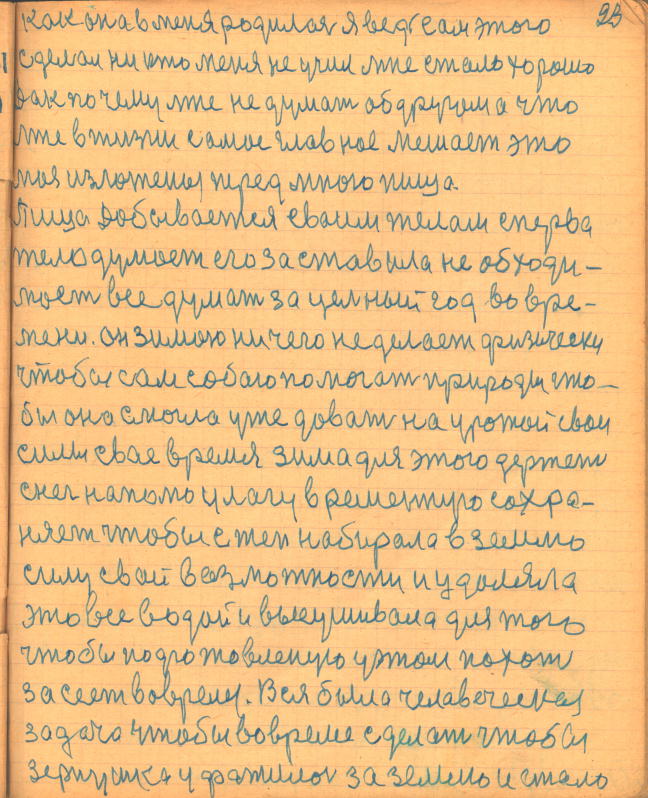 23
как она в меня родилася я ведь сам этого
сделал ни кто меня не учил мне стало хорошо
дак почему мне не думат об другом а что
мне в жизни самое главное мешает это
моя изложеная пред мною пища.
Пища добывается своим телам сперва
тело думает его заставила не обходи-
мост все думат за целный год во вре-
мени. он зимою ни чего не делает физически
чтобы сам собаю помогат природы что-
бы она смогла уже доват на урожай свои
силы свае время зима для этого держет
снег на полю влагу временную сохра-
няет чтобы степ набирала в землю
силу свой возможности и удоляла
это все водой и высушивала для того
чтобы подготовленую этом пахот
засеет вовремя. Вся была человеческая
задача чтобы вовреме сделат чтобы
зернушка ухватилос за землю и стало